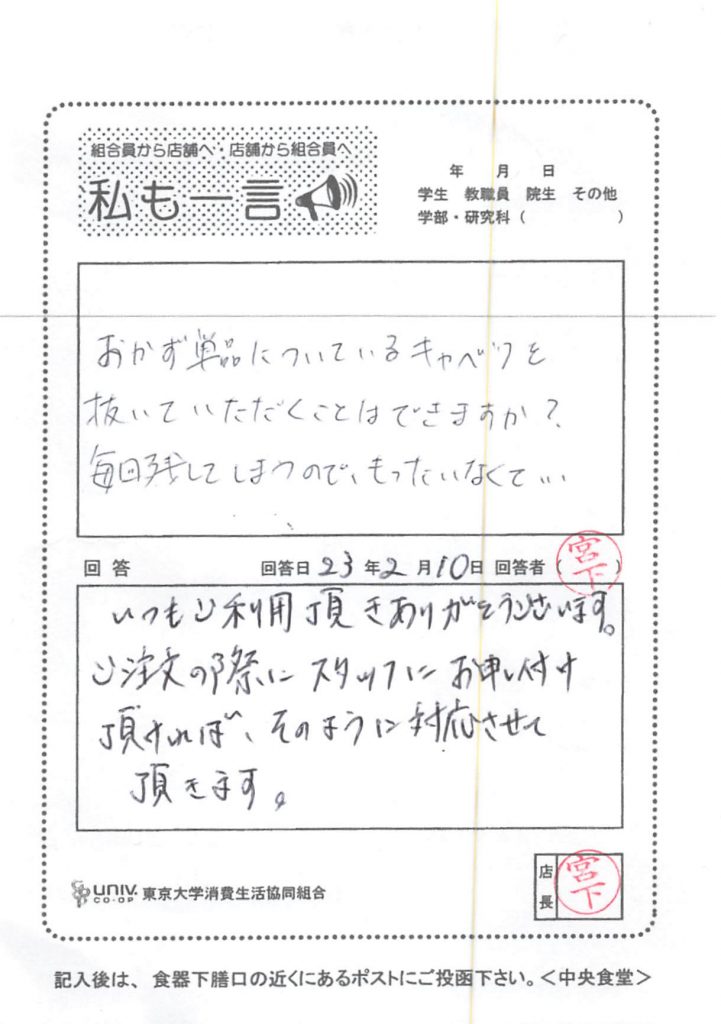 組合員から店舗へ・店舗から組合員へ
私も一言
年 月 日
学生 教職員 院生 その他
学部・研究科（ ）
おかず単品についているキャベツを
抜いていただくことはできますか？
毎回残してしまうので、もったいなくて…
回答 回答日 23年2月10日 回答者（宮下）
いつもご利用頂きありがとうございます。
ご注文の際にスタッフにお申し付け
頂ければ、そのように対応させて
頂きます。
UNIV. CO-OP 東京大学消費生活協同組合
店長 宮下
記入後は、食器下膳口の近くにあるポストにご投函下さい。＜中央食堂＞